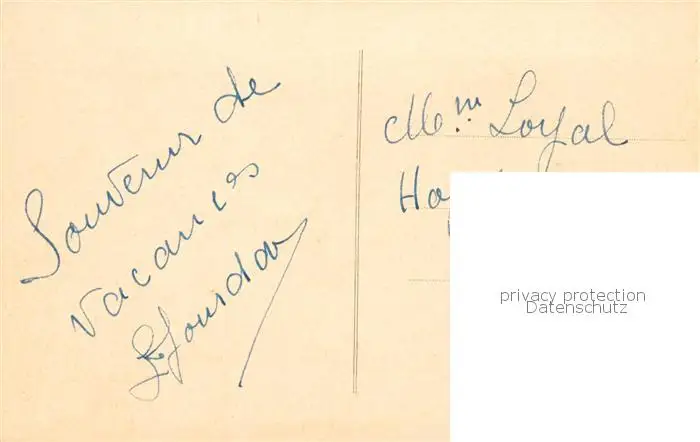 Souvenir de
vacances
Jourdan
Mme Loyal
privacy protection
Datenschutz